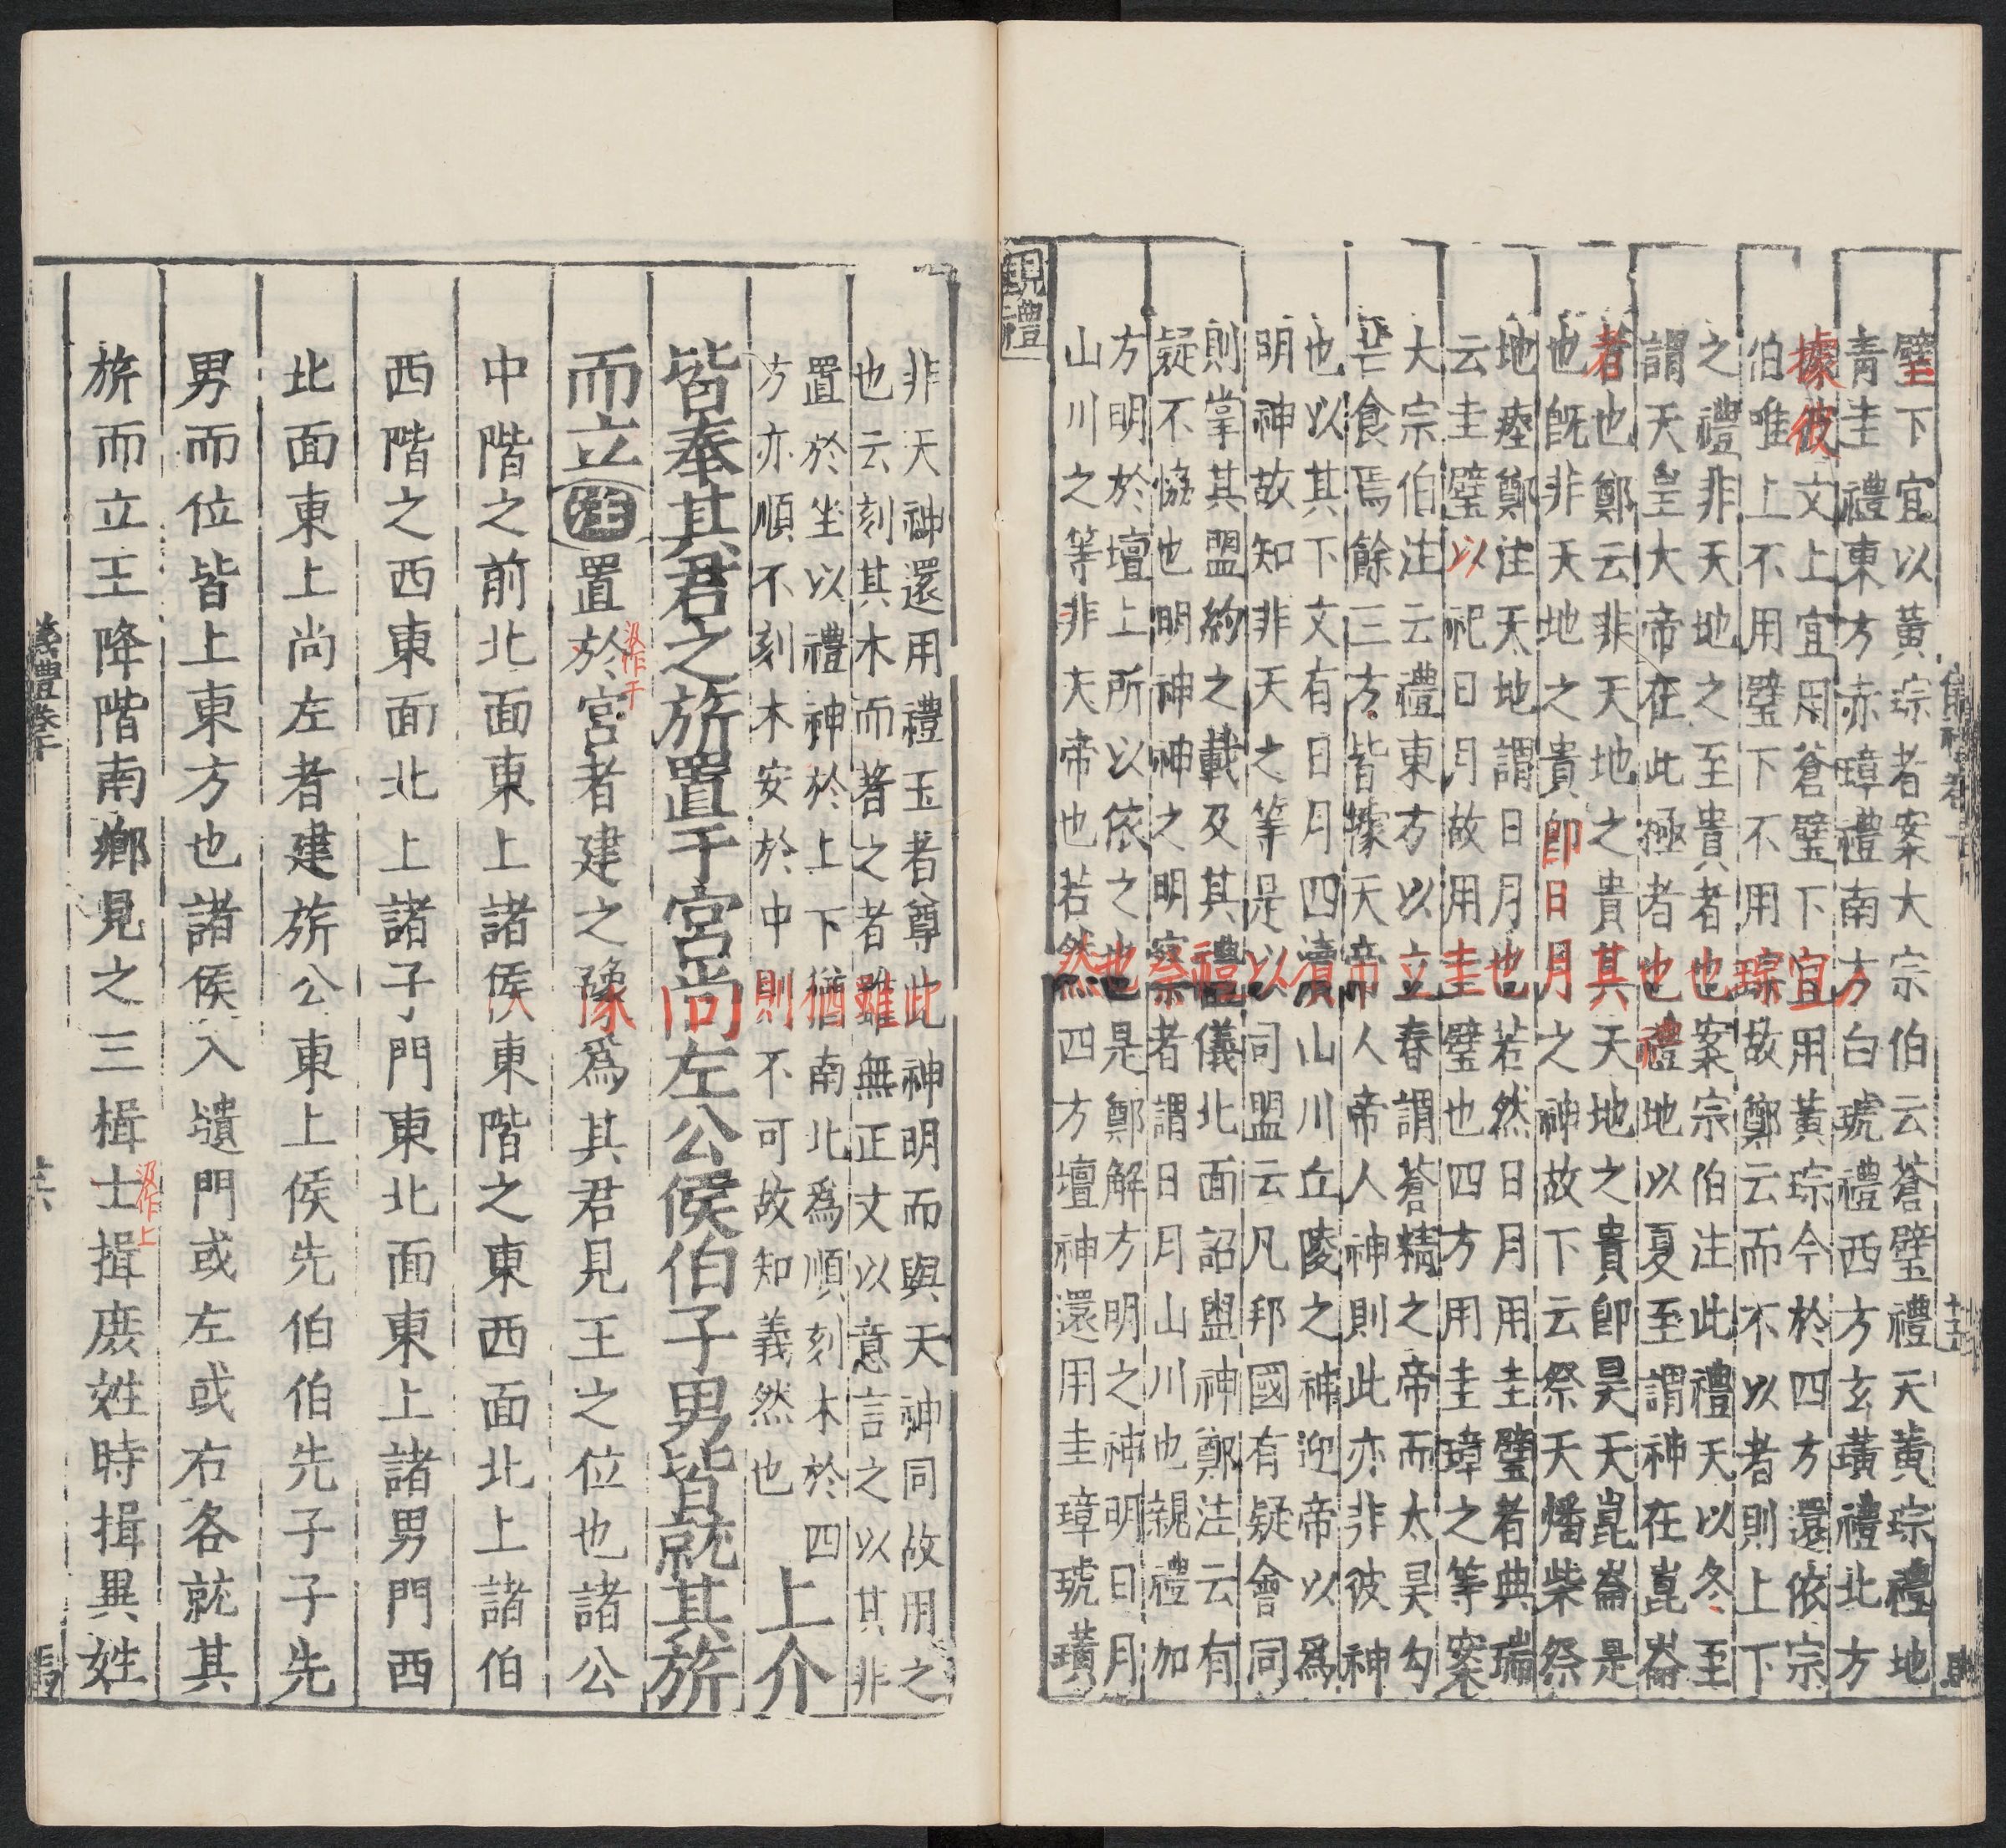 璧下宜以黃琮者案大宗伯云蒼璧禮天黃琮禮地
青圭禮東方赤璋禮南方白琥禮西方玄璜禮北方
據彼文上宜用蒼璧下宜用黃琮今於四方還依宗
伯唯上不用璧下不用琮故鄭云而不以者則上下
之禮非天地之至貴者也案宗伯注此禮天以冬至
謂天皇大帝在北極者也禮地以夏至謂神在崑崙
者也鄭云非天地之貴其天地之貴卽昊天崑崙是
也旣非天地之貴卽日月之神故下云祭天燔柴祭
地瘞鄭注天地謂日月也若然日月用圭璧者典瑞
云圭璧以祀日月故用圭璧也四方用圭璋之等案
大宗伯注云禮東方以立春謂蒼精之帝而太昊勾
芒食焉餘三方皆據天帝人帝人神則此亦非彼神
也以其下文有日月四瀆山川丘陵之神迎帝以爲
明神故知非天之等是以司盟云凡邦國有疑會同
則掌其盟約之載及其禮儀北面詔盟神鄭注云有
疑不協也明神神之明察者謂日月山川也覲禮加
方明於壇上所以依之也是鄭解方明之神明日月
山川之等非天帝也若然四方壇神還用圭璋琥璜
覲禮
非天神還用禮玉者尊此神明而與天神同故用之
也云刻其木而著之者雖無正文以意言之以其非
置於坐以禮神於上下猶南北爲順刻木於四
方亦順不刻木安於中則不可故知義然也
上介
皆奉其君之旂置于宮尚左公侯伯子男皆就其旂
而立注置於宮者建之豫爲其君見王之位也諸公
汲作于
中階之前北面東上諸侯東階之東西面北上諸伯
西階之西東面北上諸子門東北面東上諸男門西
北面東上尚左者建旂公東上侯先伯伯先子子先
男而位皆上東方也諸侯入壝門或左或右各就其
旂而立王降階南鄉見之三揖士揖庶姓時揖異姓
汲作上
儀禮卷十